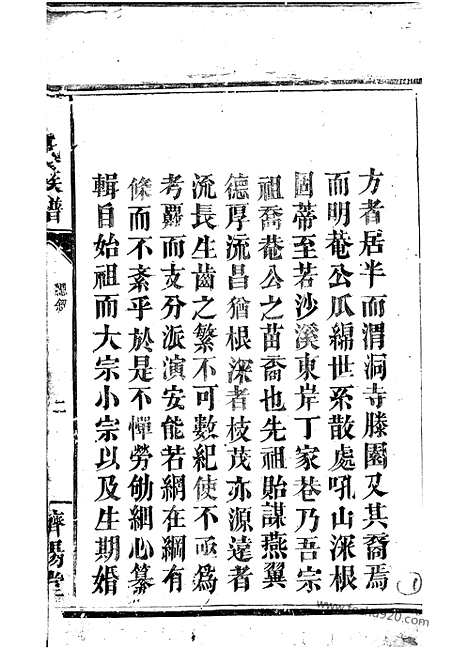 方者居半而渭洞寺滕園又其裔焉
而明菴公瓜綿世系散處吼山深根
固蒂至若沙溪東岸丁家巷乃吾宗
祖喬菴公之苗裔也先祖貽謀燕翼
德厚流昌猶根深者枝茂亦源遠者
流長生齒之繁不可數紀使不亟爲
考覈而支分派演安能若網在綱有
條而不紊乎於是不憚勞劬細心纂
輯自始祖而大宗小宗以及生期婚
氏族譜
總敘
二
濟陽堂
1